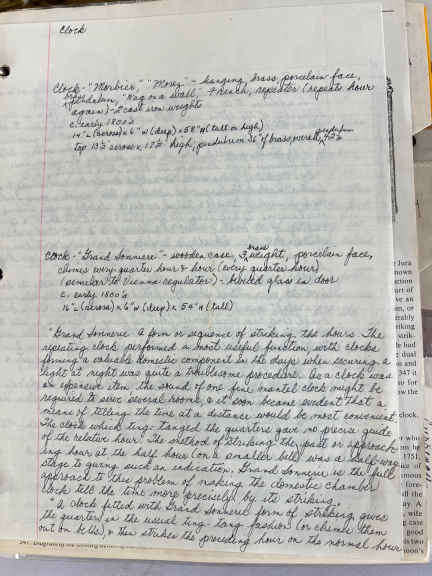 Clock
Clock - "Morbier," "Morez" - hanging, brass, porcelain face,
pendulum, "Wag on a wall" French, repeater (repeats hour
again) - 2 cast iron weights
c. early 1800's
14" L (across) x 6" W (deep) x 58" H (tall or high)
top 13½" across x 17½" high, pendulum 36" of brass, overall
pendulum
brass
Clock - "Grand Sonnerie" - wooden case, 3 weight, porcelain face,
chimes every quarter hour & hour (every quarter hour)
(similar to Vienna regulator) - beveled glass in door
c. early 1800's
16" L (across) x 6" W (deep) x 54" H (tall)
"Grand Sonnerie" a form or sequence of striking the hours. The
repeating clock performed a most useful function, with clocks
forming a valuable domestic component in the days when securing a
light at night was quite a troublesome procedure. As a clock was
an expensive item the sound of one fine mantel clock might be
required to serve several rooms, & it soon became evident that a
means of telling the time at a distance would be most convenient.
The clock which ting-tanged the quarters gave no precise guide
of the relative hour. The method of striking the past or approach-
ing hour at the half hour (on a smaller bell) was a half-way
stage to giving such an indication. Grand Sonnerie is the full
approach to this problem of making the domestic chamber
clock tell the time more precisely by its striking.
"A clock fitted with Grand Sonnerie form of striking gives
the quarters in the usual ting tang fashion (or chimes them
out on bells), & then strikes the preceding hour on the normal hour